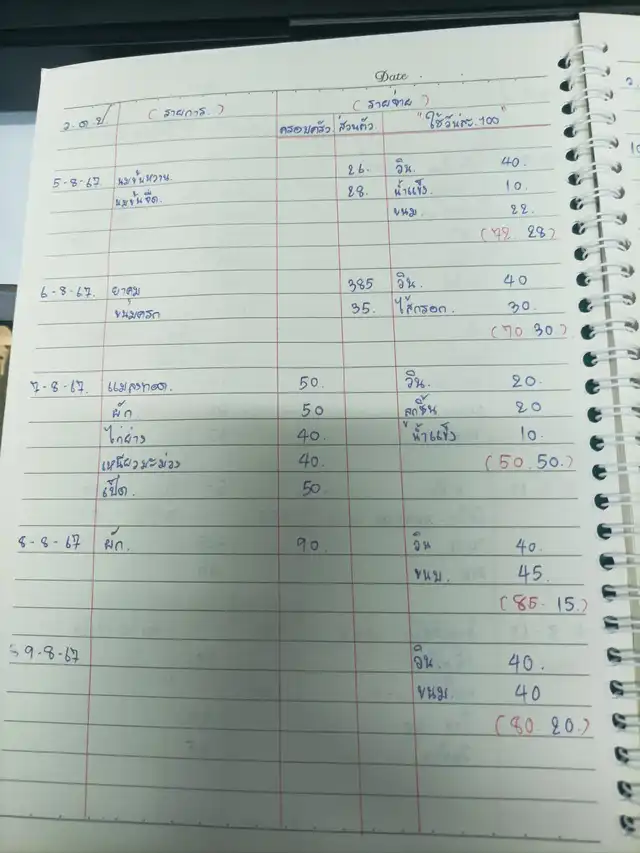 Date
ว.ด.ป. (รายการ) (รายจ่าย)
ครอบครัว ส่วนตัว "ใช้วันละ 100"
5-8-67 นมข้นหวาน 26. วิน 40.
นมข้นจืด. 28. น้ำแข็ง 10.
ขนม 22.
(72 28)
6-8-67. ยาคุม 385 วิน. 40
ขนมครก 35. ไส้กรอก 30.
(70 30)
7-8-67. แมลงทอด. 50. วิน. 20.
ผัก 50 ลูกชิ้น 20
ไก่ย่าง 40. น้ำแข็ง 10.
เหนียวมะม่วง 40. (50.50.)
เป็ด. 50.
8-8-67 ผัก. 90. วิน 40.
ขนม. 45.
(85. 15.)
9-8-67 วิน. 40.
ขนม 40
(80 20.)